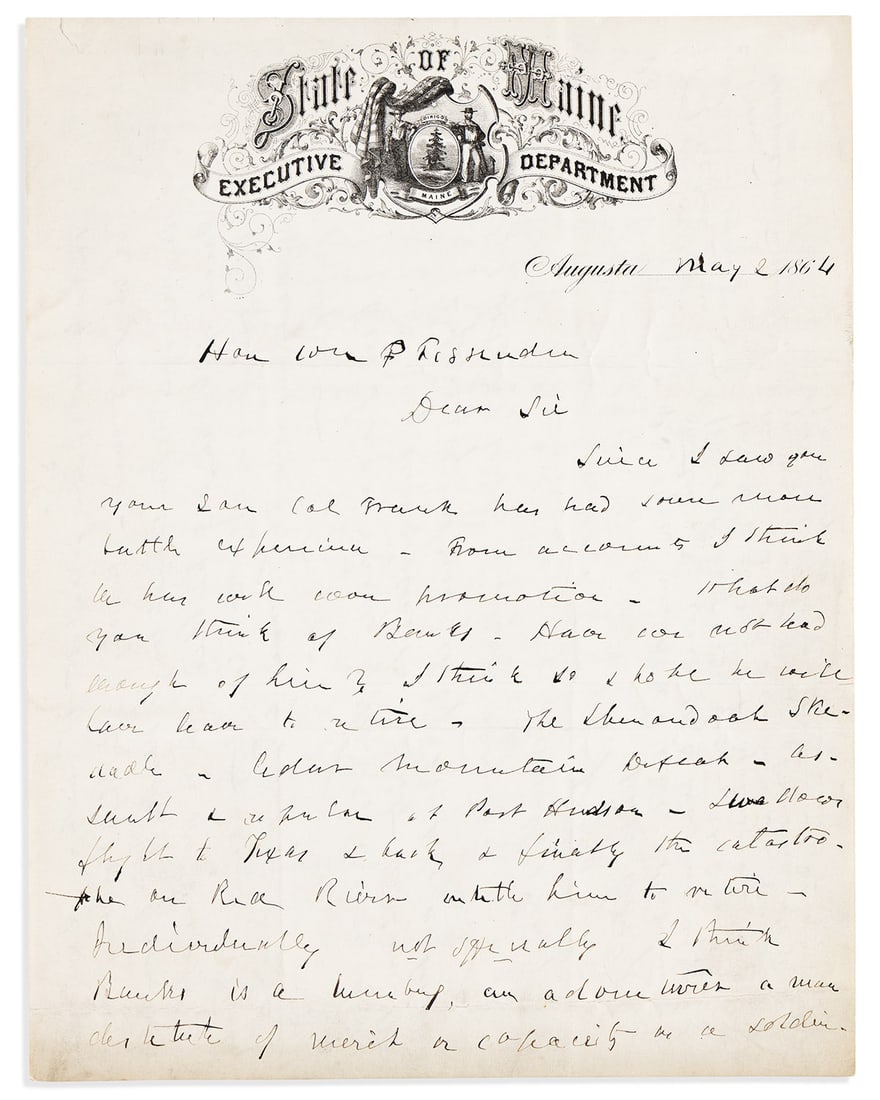 State OF Maine
DIRIGO
EXECUTIVE DEPARTMENT
MAINE
Augusta May 2 1864
Hon Wm P Fessenden
Dear Sir
Since I saw you
your son Col Frank has had some more
battle experience - From accounts I think
he has well won promotion - What do
you think of Banks - Have we not had
enough of him? I think so & hope he will
have leave to retire - The Shenandoah Ske-
dadle - Cedar Mountain Defeat - as-
sault & repulse at Port Hudson - down
flight to Texas & back, & finally the catastro-
phe on Red River entitle him to retire -
Individually not officially I think
Banks is a humbug, an adventurer a man
destitute of merit or capacity as a soldier.